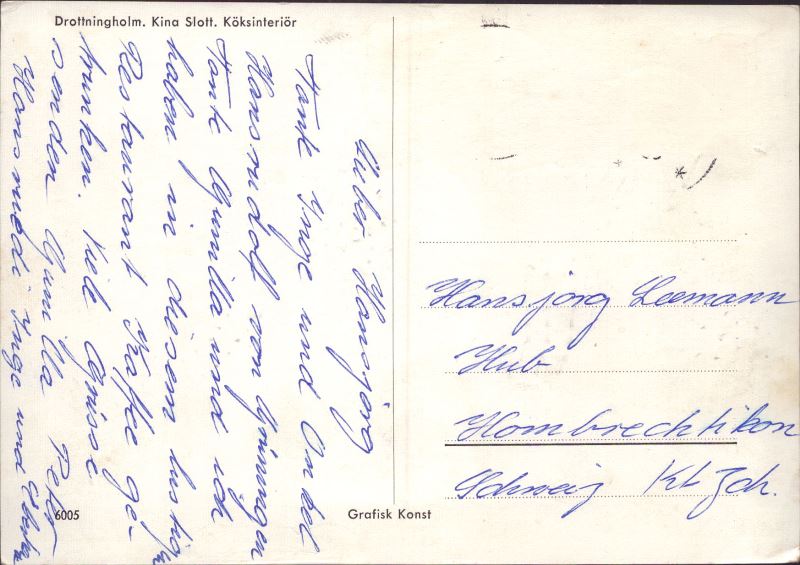 Drottningholm. Kina Slott. Köksinteriör
Lieber Hansjörg
Tante Inge und Onkel
Hansrudolf von Grüningen
Tante Gunilla und ich
haben in diesem lustigen
Restaurant Kaffee ge-
trunken. Viele Grüsse
senden Gunilla Peter
Hansruedi Inge und
6005
Grafisk Konst
Hansjörg Leemann
Hub
Hombrechtikon
Schweiz Kt Zch.